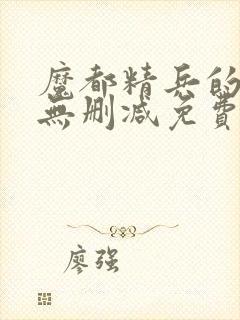 魔都精兵的
無刪減免費
廖强